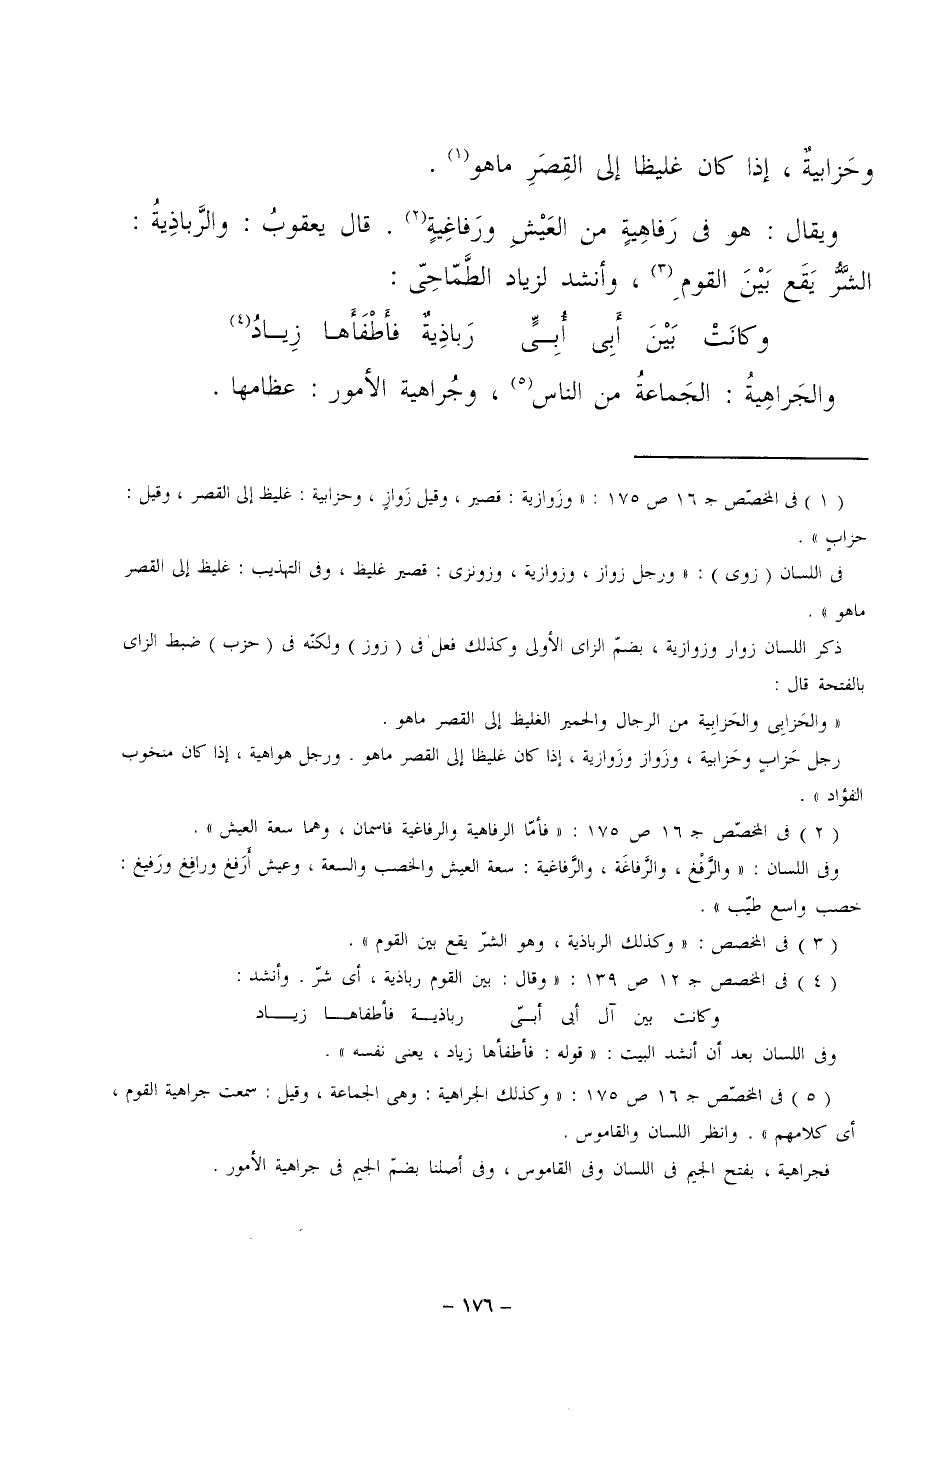 وحَزابيةٌ ، إذا كان غليظا إلى القِصَرِ ماهو(١) .
ويقال : هو فى رَفاهِيةٍ من العَيْشِ ورَفاغِيةٍ(٢) . قال يعقوبُ : والرَّباذِيةُ :
الشرُّ يَقَع بَيْنَ القومِ(٣) ، وأنشد لزياد الطَّمّاحِىّ :
وكانَتْ بَيْنَ أَبِى أُبِىٍّ رَباذِيةٌ فأَطْفَأَها زِيادُ(٤)
والجَراهِيةُ : الجَماعةُ من الناس(٥) ، وجُراهية الأمور : عظامها .
( ١ ) فى المخصّص جـ ١٦ ص ١٧٥ : « وزَوازية : قصير ، وقيل زَوازٍ ، وحزابية : غليظ إلى القصر ، وقيل :
حزابٍ » .
فى اللسان ( زوى ) : « ورجل زواز ، وزوازية ، وزونزى : قصير غليظ ، وفى التهذيب : غليظ إلى القصر
ماهو » .
ذكر اللسان زوار وزوازية ، بضمّ الزاى الأولى وكذلك فعل فى ( زوز ) ولكنّه فى ( حزب ) ضبط الزاى
بالفتحة قال :
« والحَزابِى والحَزابِية من الرجال والحمير الغليظ إلى القصر ماهو .
رجل حَزابٍ وحَزابية ، وزَواز وزَوازية ، إذا كان غليظا إلى القصر ماهو . ورجل هواهية ، إذا كان منخوب
الفؤاد » .
( ٢ ) فى المخصّص جـ ١٦ ص ١٧٥ : « فأمّا الرفاهية والرفاغية فاسمان ، وهما سعة العيش » .
وفى اللسان : « والرَّفْغ ، والرَّفاغَة ، والرَّفاغية : سعة العيش والخصب والسعة ، وعيش أَرَفغ ورافِغ ورَفيغ :
خصب واسع طيّب » .
( ٣ ) فى المخصص : « وكذلك الرباذية ، وهو الشرّ يقع بين القوم » .
( ٤ ) فى المخصص جـ ١٢ ص ١٣٩ : « وقال : بين القوم رباذية ، أى شرّ . وأنشد :
وكانت بين آل أبى أبىّ رباذية فأطفاها زياد
وفى اللسان بعد أن أنشد البيت : « قوله : فأطفأها زياد ، يعنى نفسه » .
( ٥ ) فى المخصّص جـ ١٦ ص ١٧٥ : « وكذلك الجراهية : وهى الجماعة ، وقيل : سمعت جراهية القوم ،
أى كلامهم » . وانظر اللسان والقاموس .
فجراهية ، بفتح الجيم فى اللسان وفى القاموس ، وفى أصلنا بضمّ الجيم فى جراهية الأمور .
– ١٧٦ –